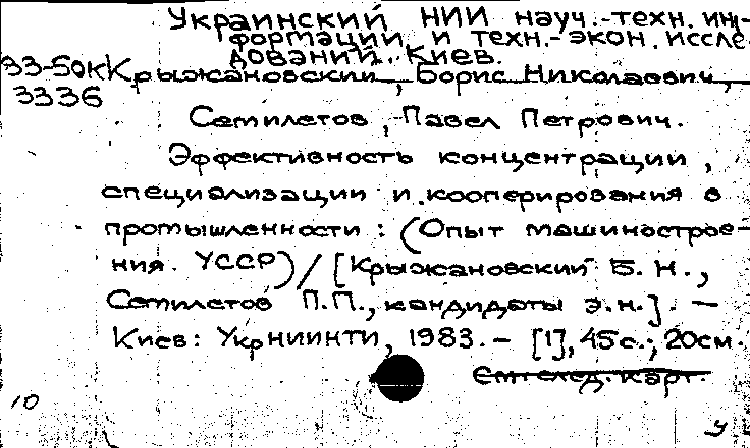 Украинский НИИ науч.-техн. ин-
формации и техн.-экон. иссле-
дований. Киев.
83-50кк Крыжановский, Борис Николаевич,
3336
Сатилетов, Павел Петрович.
Эффективность концентрации,
специализации и кооперирования в
промышленности: (Опыт машинострое-
ния УССР) / [Крыжановский Б. Н.,
Сатилетов П.П., кандидаты э.н.]. —
Киев: УкрНИИНТИ, 1983. — [1], 45 с.; 20см.
См. след. карт.
10
У